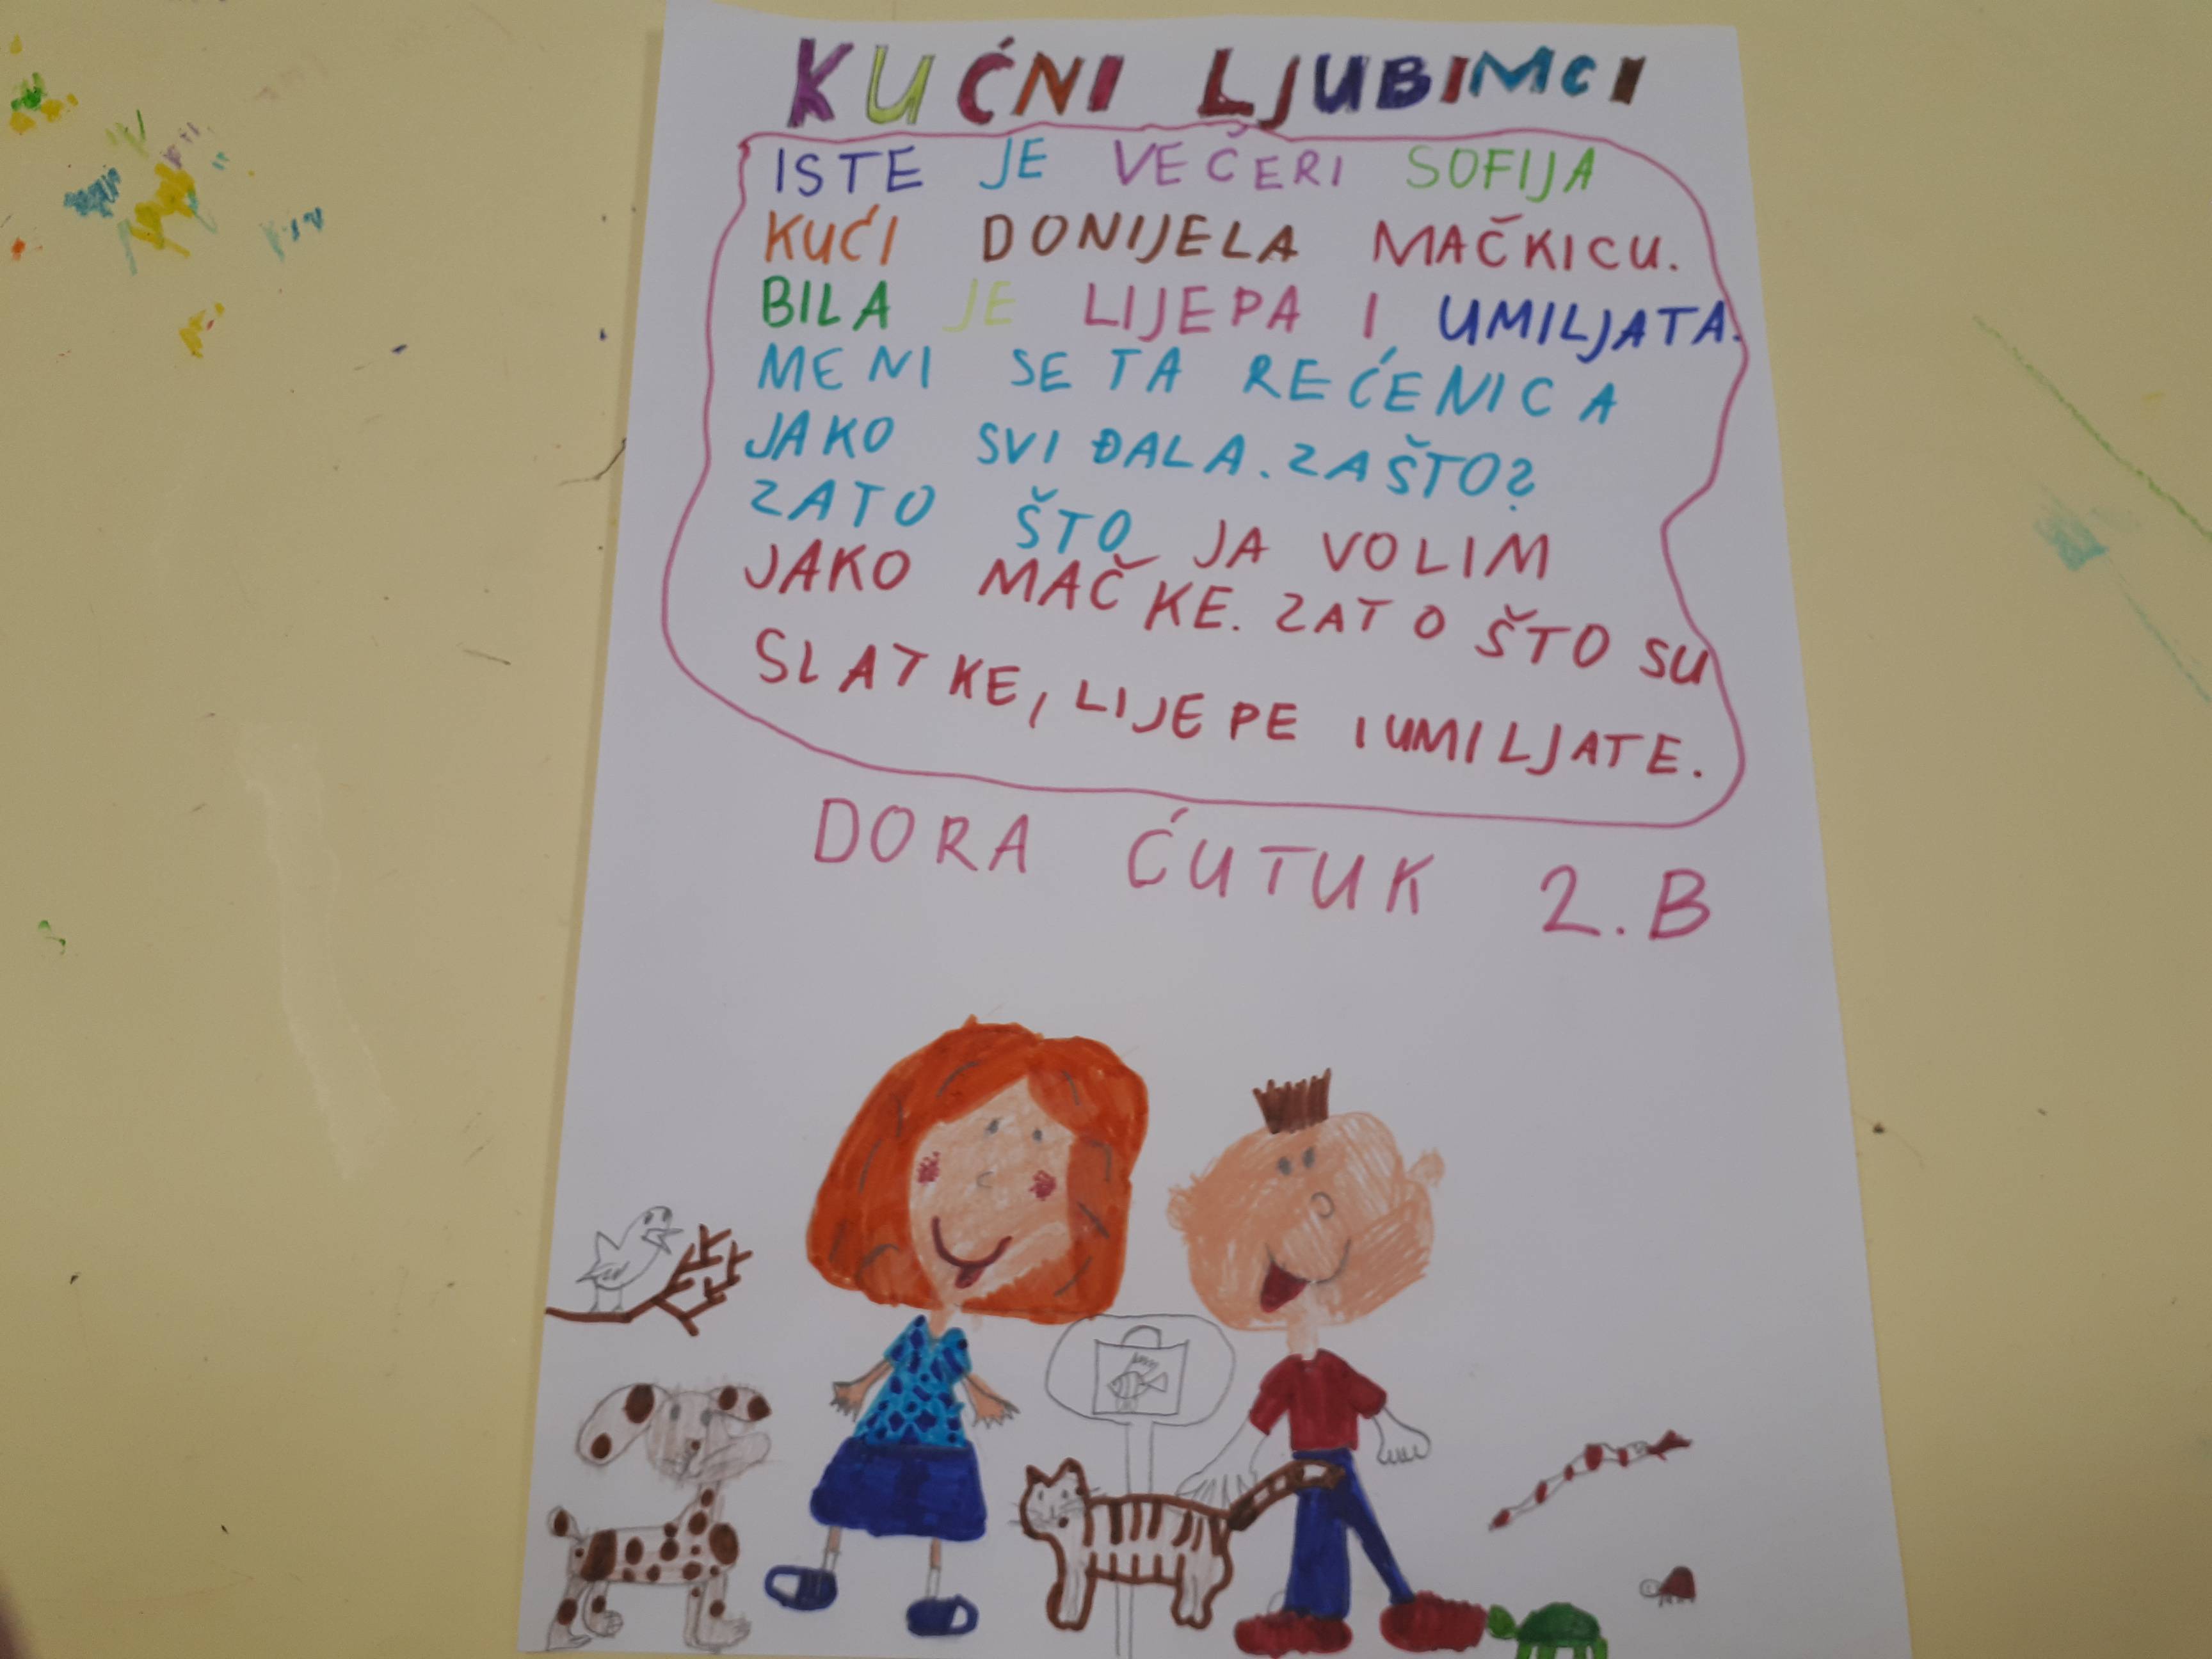 KUĆNI LJUBIMCI
ISTE JE VEČERI SOFIJA
KUĆI DONIJELA MAČKICU.
BILA JE LIJEPA I UMILJATA.
MENI SE TA REĆENICA
JAKO SVIĐALA. ZAŠTO?
ZATO ŠTO JA VOLIM
JAKO MAČKE. ZATO ŠTO SU
SLATKE, LIJEPE I UMILJATE.
DORA ĆUTUK 2.B